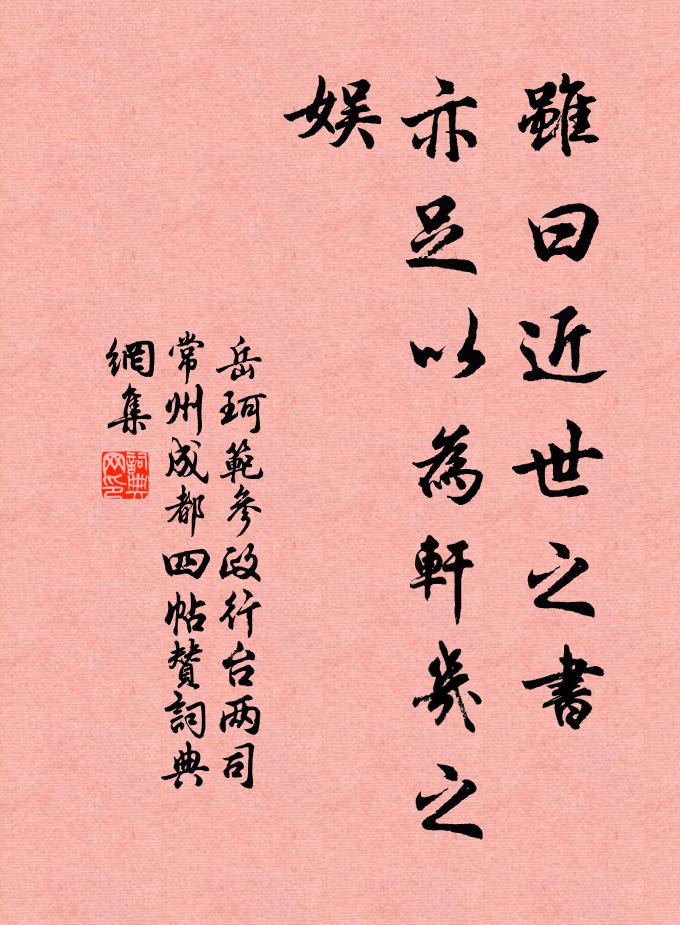 雖曰近世之書
亦足以為軒幾之
娛
岳珂範參政行台两司
常州成都四帖賛詞典
網集
詞典
网印